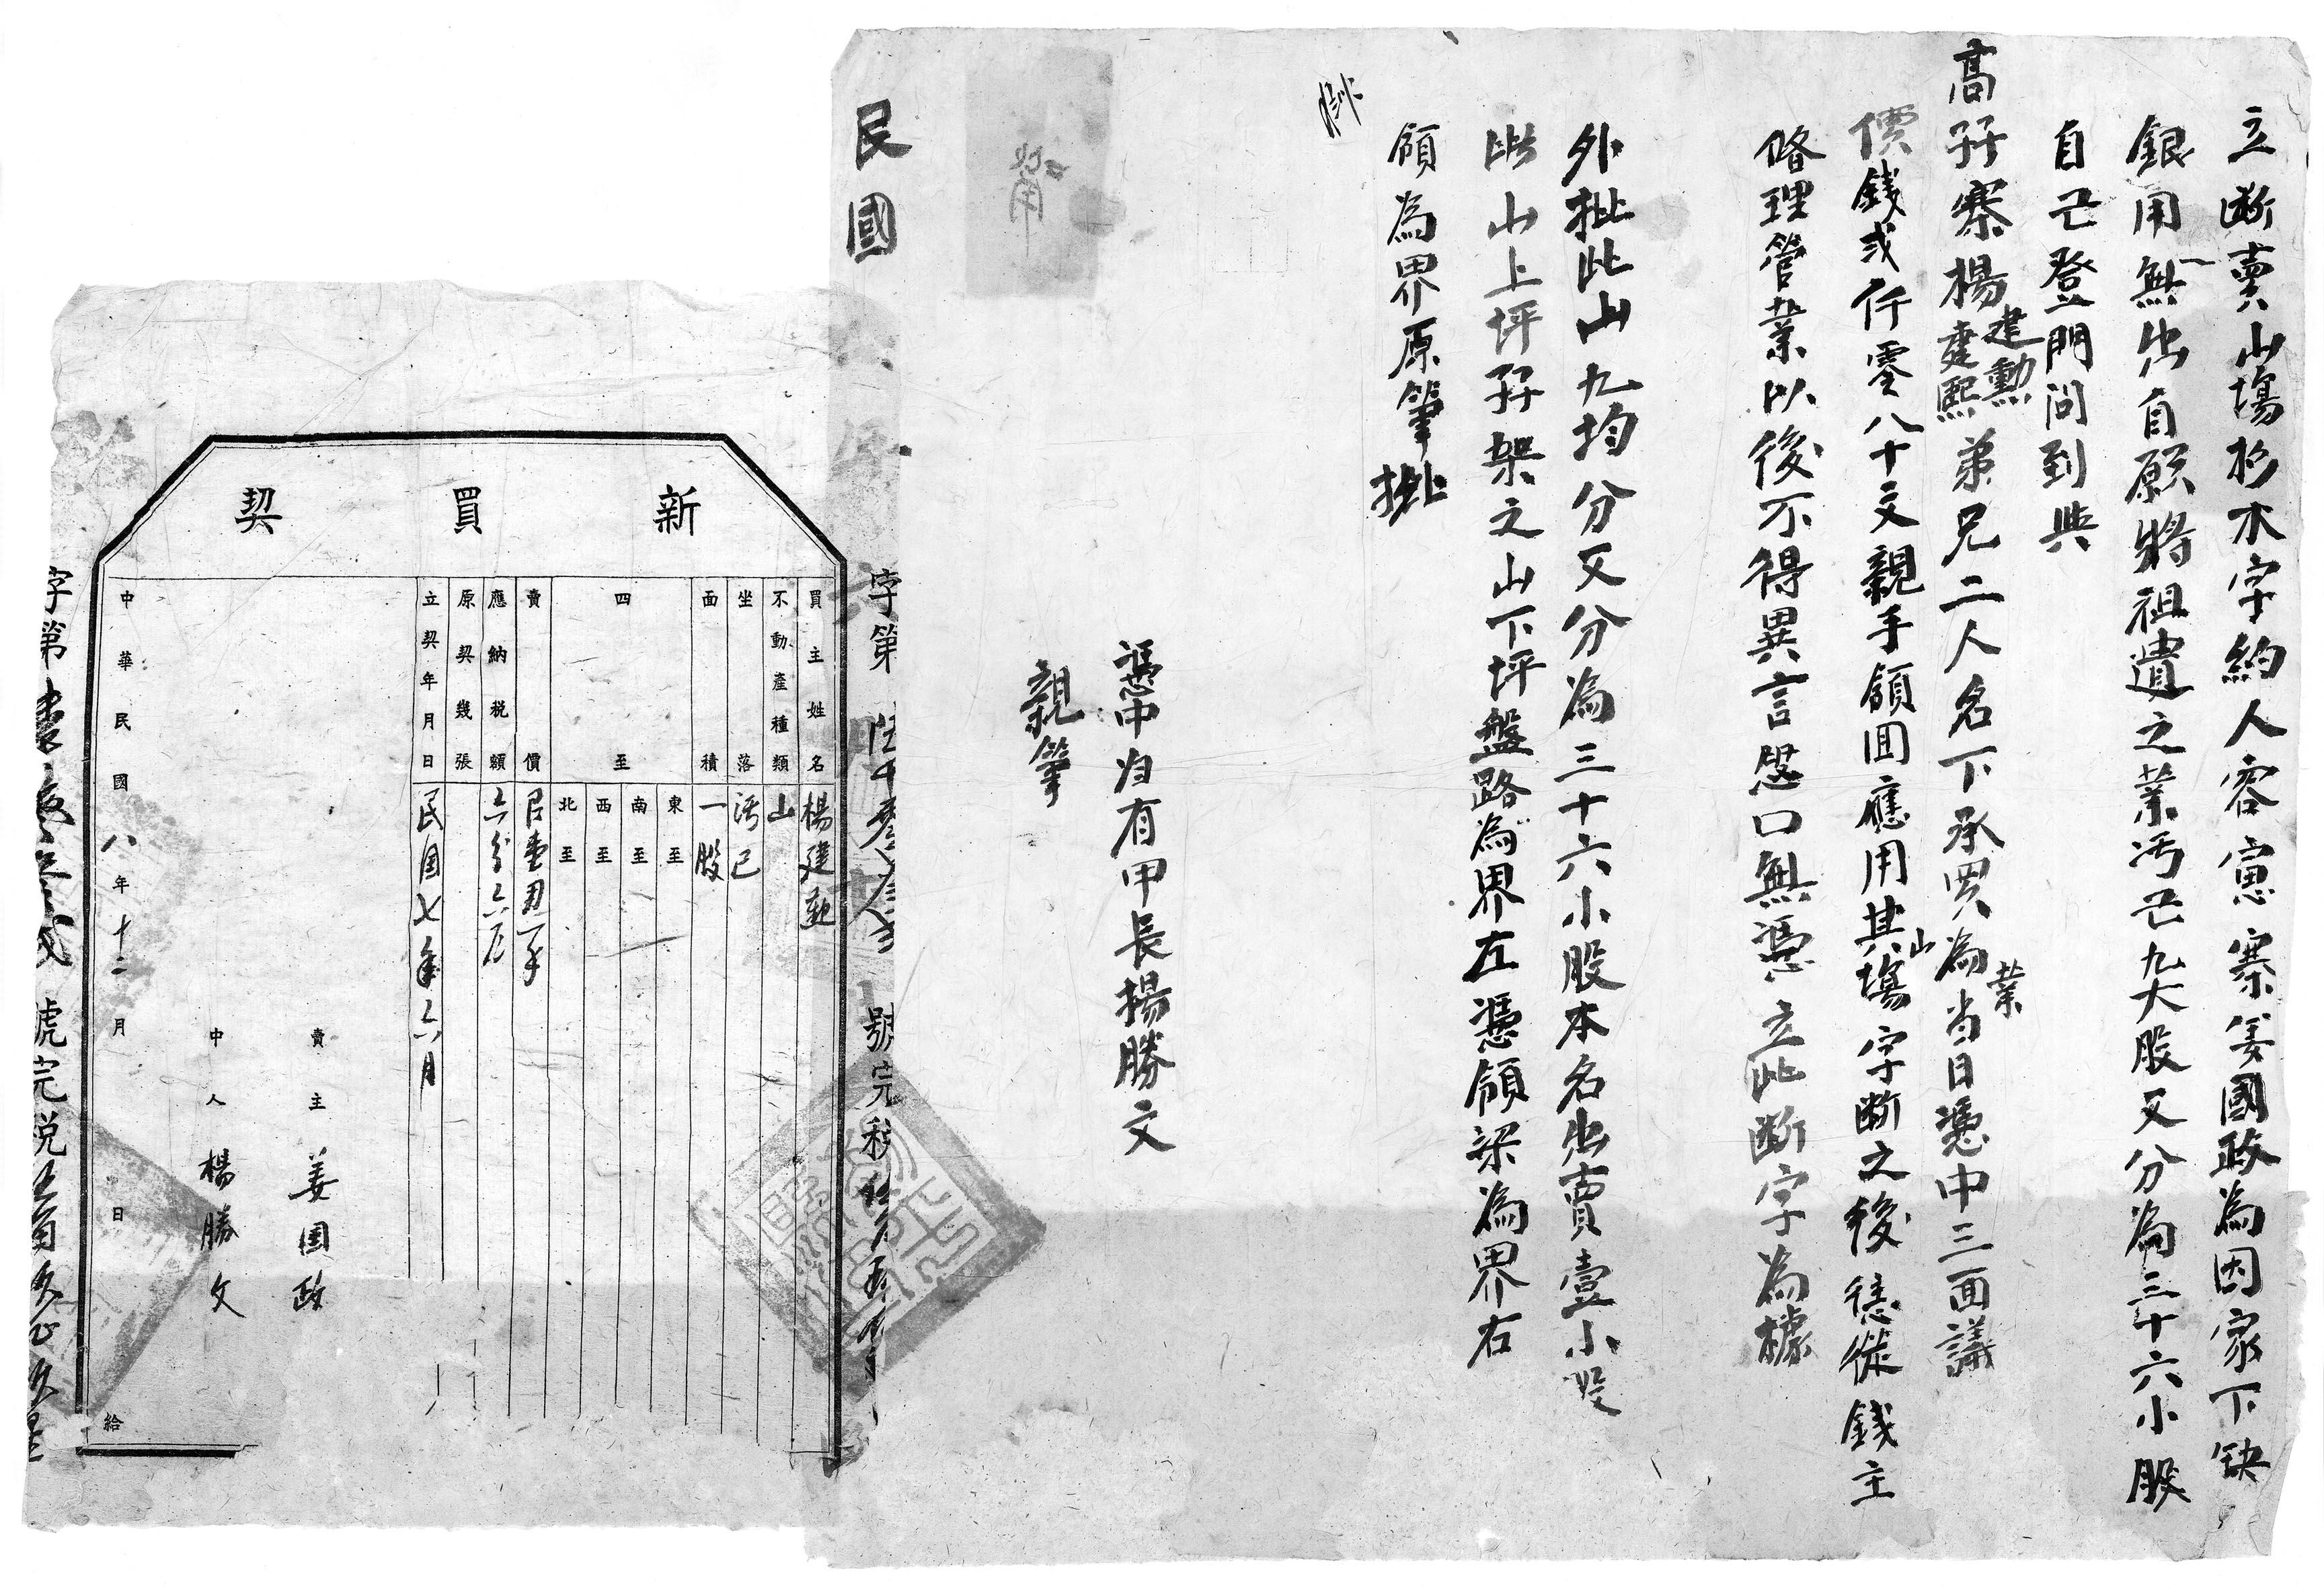 立断賣山塲杉木字約人容㥠寨姜國政為因家下缺
銀用無出自願將祖遺之業污己九大股又分為三十六小股
自己登門問到與
高孖寨楊建勳建熙弟兄二人名下承買為業当日憑中三面議
價錢弍仟零八十文親手領囬應用其山塲字断之後憑從錢主
畧理管業以後不得異言恐口無憑立此断字為據
外批此山九均分又分為三十六小股本名出賣壹小股
此山上坪孖架之山下坪盤路為界左憑嶺梁為界右
領為界原筆批
憑中自有甲長揚勝文
親筆
民國
字第 號完稅
新買契
買主姓名 楊建勳
不動產種類 山
坐落 污已
面積 一股
四至 東至 南至 西至 北至
賣價
應納稅額 六分六厘
原契幾張
立契年月日 民国七年六月
賣主 姜国政
中人 楊勝文
中華民國八年十二月 日給
字第 號完税